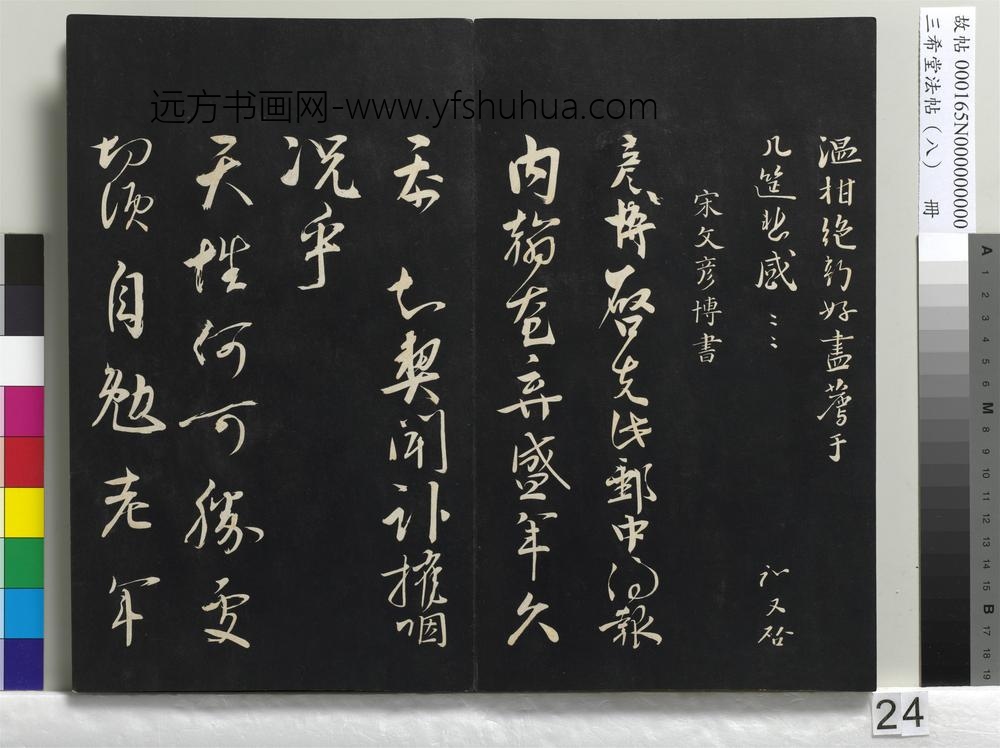 温柑绝新好盡薦于
几筵悲感〻〻 又啓
宋文彦博書
彦博啓此郵中得報
内翰奄弃盛年久
忝 知契聞訃摧咽
况乎
天性何可勝處
切須自勉老年
远方书画网-www.yfshuhua.com
故帖 000165N000000000
三希堂法帖（八） 冊
A 1 2 3 4 5 6 M 8 9 10 11 12 13 14 15 B 17 18 19
24